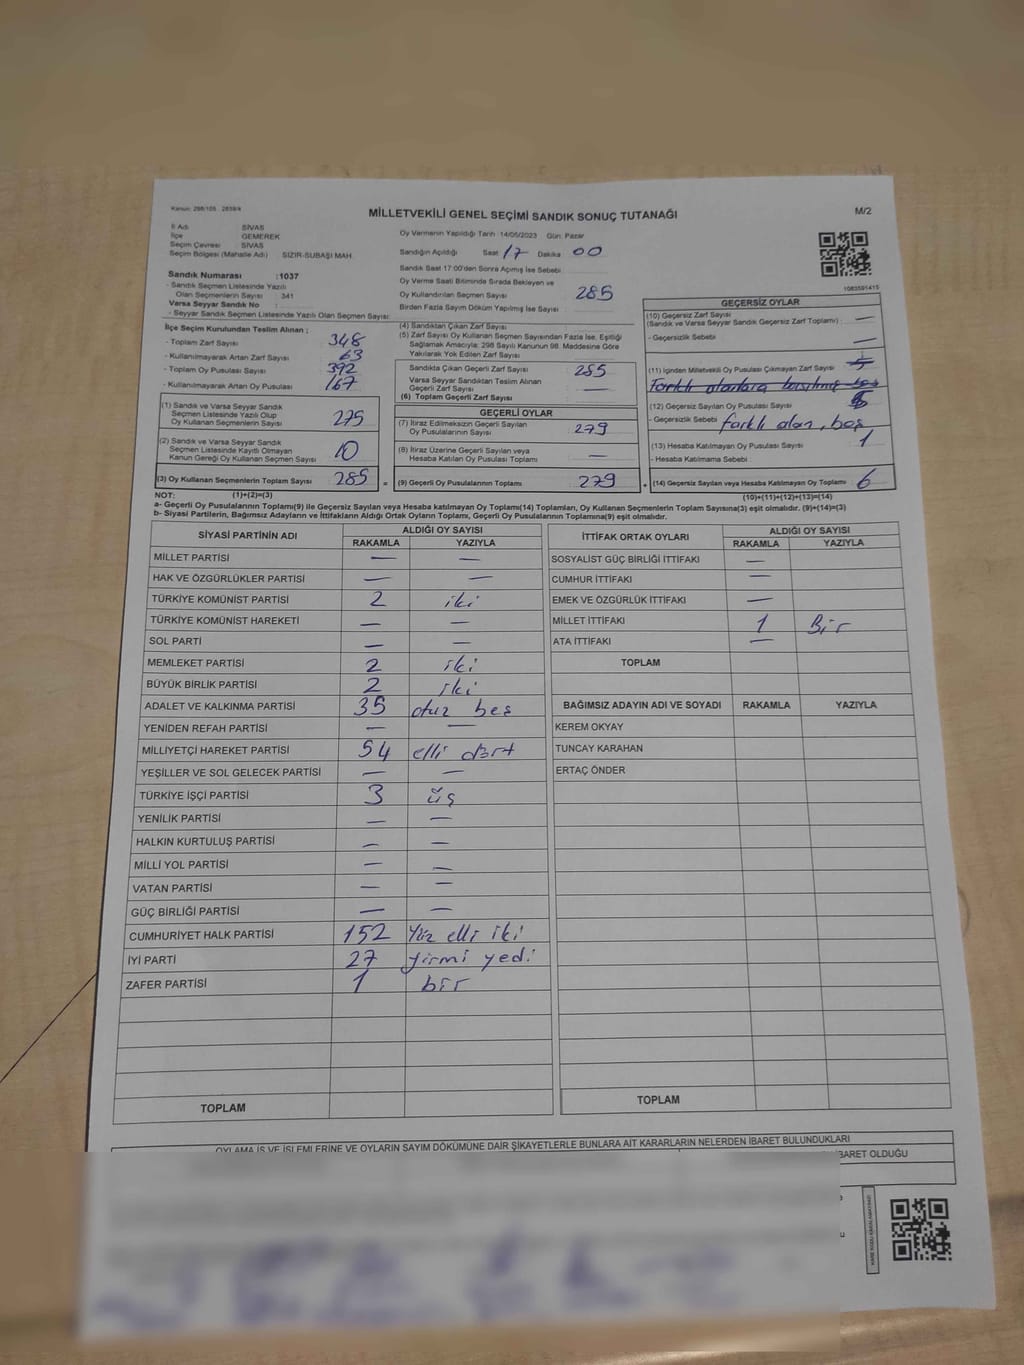 Kanun: 298/105 2839/4
MİLLETVEKİLİ GENEL SEÇİMİ SANDIK SONUÇ TUTANAĞI
M/2
İl Adı SİVAS
İlçe GEMEREK
Seçim Çevresi SİVAS
Seçim Bölgesi (Mahalle Adı) SIZIR-SUBAŞI MAH.
Sandık Numarası :1037
- Sandık Seçmen Listesinde Yazılı
Olan Seçmenlerin Sayısı : 341
Varsa Seyyar Sandık No :
- Seyyar Sandık Seçmen Listesinde Yazılı Olan Seçmen Sayısı:
Oy Vermenin Yapıldığı Tarih :14/05/2023 Gün: Pazar
Sandığın Açıldığı Saat 17 Dakika 00
Sandık Saat 17:00'den Sonra Açımış İse Sebebi
Oy Verme Saati Bitiminde Sırada Bekleyen ve
Oy Kullandırılan Seçmen Sayısı 285
Birden Fazla Sayım Döküm Yapılmış İse Sayısı
1083591415
İlçe Seçim Kurulundan Teslim Alınan ;
- Toplam Zarf Sayısı 348
- Kullanılmayarak Artan Zarf Sayısı 63
- Toplam Oy Pusulası Sayısı 392
- Kullanılmayarak Artan Oy Pusulası 167
(1) Sandık ve Varsa Seyyar Sandık
Seçmen Listesinde Yazılı Olup
Oy Kullanan Seçmenlerin Sayısı 275
(2) Sandık ve Varsa Seyyar Sandık
Seçmen Listesinde Kayıtlı Olmayan
Kanun Gereği Oy Kullanan Seçmen Sayısı 10
(3) Oy Kullanan Seçmenlerin Toplam Sayısı 285 =
(4) Sandıktan Çıkan Zarf Sayısı
(5) Zarf Sayısı Oy Kullanan Seçmen Sayısından Fazla İse, Eşitliği
Sağlamak Amacıyla: 298 Sayılı Kanunun 98. Maddesine Göre
Yakılarak Yok Edilen Zarf Sayısı
Sandıkta Çıkan Geçerli Zarf Sayısı 285
Varsa Seyyar Sandıktan Teslim Alınan
Geçerli Zarf Sayısı : —
(6) Toplam Geçerli Zarf Sayısı :
GEÇERLİ OYLAR
(7) İtiraz Edilmeksizin Geçerli Sayılan
Oy Pusulalarının Sayısı : 279
(8) İtiraz Üzerine Geçerli Sayılan veya
Hesaba Katılan Oy Pusulası Toplamı : —
(9) Geçerli Oy Pusulalarının Toplamı : 279 +
GEÇERSİZ OYLAR
(10) Geçersiz Zarf Sayısı
(Sandık ve Varsa Seyyar Sandık Geçersiz Zarf Toplamı) : —
- Geçersizlik Sebebi : —
(11) İçinden Milletvekili Oy Pusulası Çıkmayan Zarf Sayısı 5
Farklı alanlara basılmış beş
(12) Geçersiz Sayılan Oy Pusulası Sayısı
- Geçersizlik Sebebi : farklı alan, beş
(13) Hesaba Katılmayan Oy Pusulası Sayısı : 1
- Hesaba Katılmama Sebebi :
(14) Geçersiz Sayılan veya Hesaba Katılmayan Oy Toplamı : 6
NOT: (1)+(2)=(3) (10)+(11)+(12)+(13)=(14)
a- Geçerli Oy Pusulalarının Toplamı(9) ile Geçersiz Sayılan veya Hesaba katılmayan Oy Toplamı(14) Toplamları, Oy Kullanan Seçmenlerin Toplam Sayısına(3) eşit olmalıdır. (9)+(14)=(3)
b- Siyasi Partilerin, Bağımsız Adayların ve İttifakların Aldığı Ortak Oyların Toplamı, Geçerli Oy Pusulalarının Toplamına(9) eşit olmalıdır.
SİYASİ PARTİNİN ADI ALDIĞI OY SAYISI
RAKAMLA YAZIYLA
MİLLET PARTİSİ — —
HAK VE ÖZGÜRLÜKLER PARTİSİ — —
TÜRKİYE KOMÜNİST PARTİSİ 2 iki
TÜRKİYE KOMÜNİST HAREKETİ — —
SOL PARTİ — —
MEMLEKET PARTİSİ 2 iki
BÜYÜK BİRLİK PARTİSİ 2 iki
ADALET VE KALKINMA PARTİSİ 35 otuz beş
YENİDEN REFAH PARTİSİ — —
MİLLİYETÇİ HAREKET PARTİSİ 54 elli dört
YEŞİLLER VE SOL GELECEK PARTİSİ — —
TÜRKİYE İŞÇİ PARTİSİ 3 üç
YENİLİK PARTİSİ — —
HALKIN KURTULUŞ PARTİSİ — —
MİLLİ YOL PARTİSİ — —
VATAN PARTİSİ — —
GÜÇ BİRLİĞİ PARTİSİ — —
CUMHURİYET HALK PARTİSİ 152 Yüz elli iki
İYİ PARTİ 27 yirmi yedi
ZAFER PARTİSİ 1 bir
TOPLAM
İTTİFAK ORTAK OYLARI ALDIĞI OY SAYISI
RAKAMLA YAZIYLA
SOSYALİST GÜÇ BİRLİĞİ İTTİFAKI —
CUMHUR İTTİFAKI —
EMEK VE ÖZGÜRLÜK İTTİFAKI —
MİLLET İTTİFAKI 1 Bir
ATA İTTİFAKI —
TOPLAM
BAĞIMSIZ ADAYIN ADI VE SOYADI RAKAMLA YAZIYLA
KEREM OKYAY
TUNCAY KARAHAN
ERTAÇ ÖNDER
TOPLAM
OYLAMA İŞ VE İŞLEMLERİNE VE OYLARIN SAYIM DÖKÜMÜNE DAİR ŞİKAYETLERLE BUNLARA AİT KARARLARIN NELERDEN İBARET BULUNDUKLARI
İBARET OLDUĞU